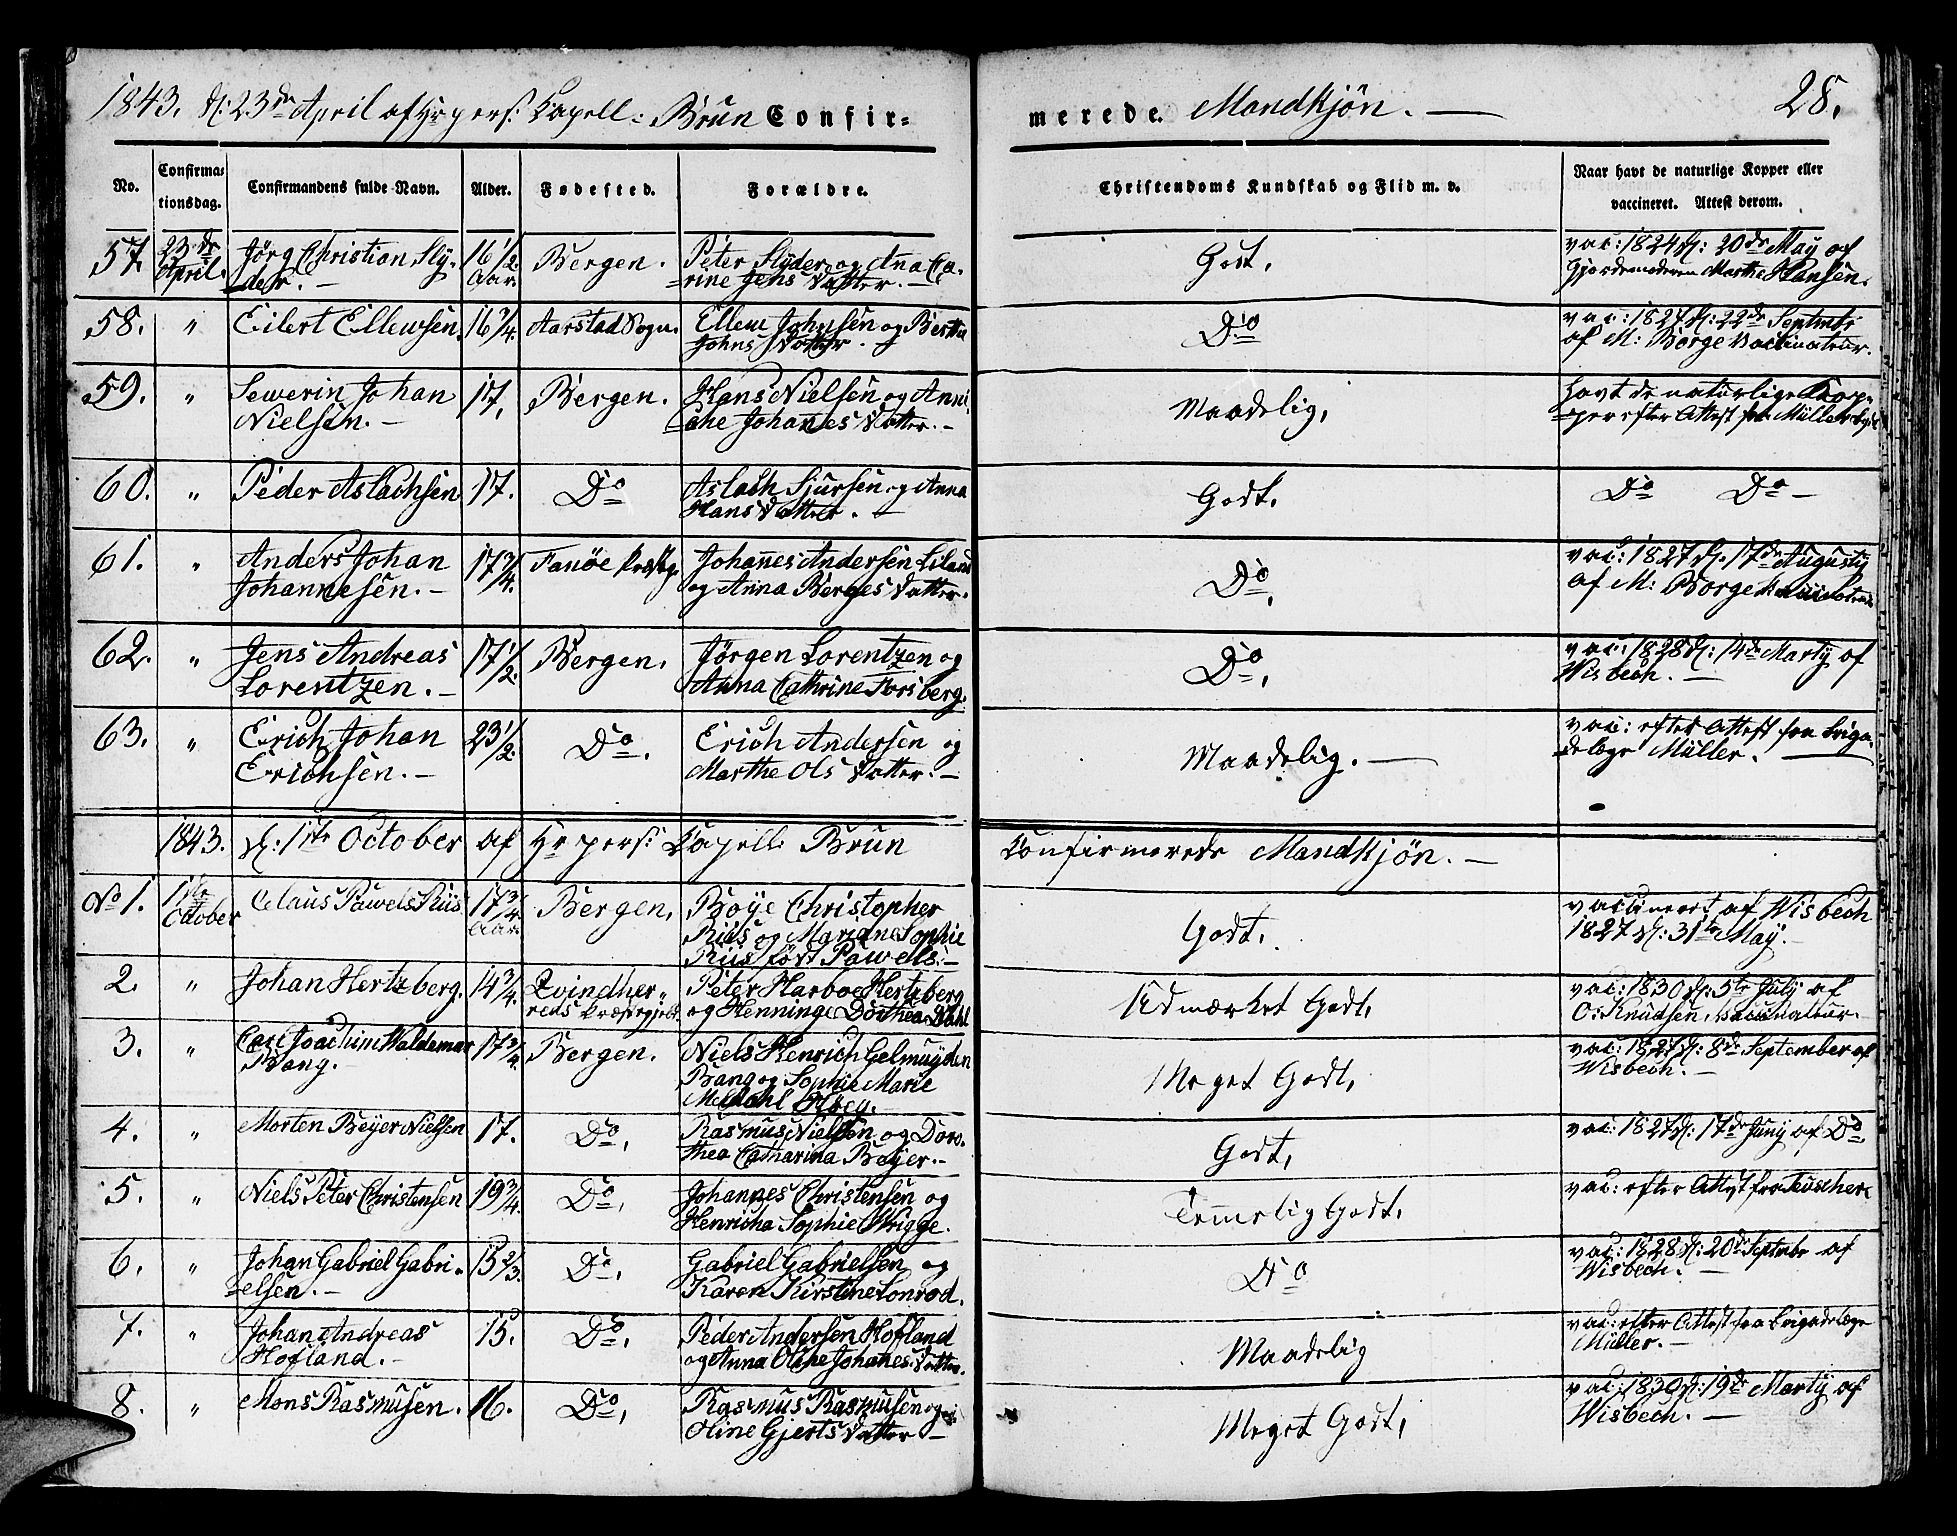 1843. d: 23de April af Hr pers: Capell: Brun Confir-
merede. Mandkjön. — 28.
No. Confirmationsdag. Confirmandens fulde Navn. Alder. Fødested. Forældre. Christendoms Kundskab og Flid m. v. Naar havt de naturlige Kopper eller vaccineret. Attest derom.
57. 23de April. Jörg Christian Slyder. — 16 1/2 Aar. Bergen. Peter Slyder og Aña Carine Jens Datter. — Godt. vac: 1824 d: 20de May af Gjordemoderen Marthe Hansen.
58. " Eilert Ellewsen. 16 3/4. Aarstad Sogn. Ellew Johnsen og Bertha Johns Datter. Do vac: 1827 d: 22de Septmbr af M: Borge Vaccinateur.
59. " Sewerin Johan Nielsen. — 17. Bergen. Hans Nielsen og Anniche Johañes Datter. — Maadelig. havt de naturlige Kopper efter Attest fra Müller
60. " Peder Aslachsen 17. Do Aslach Sjursen og Anna Hans Datter. — Godt. Do Do —
61. " Anders Johan Johannesen. — 17 3/4. Fanöe Præstg. Johañes Andersen Liland og Anna Berges Datter. Do. vac: 1827 d: 17de Augusty af M: Borge
62. " Jens Andreas Lorentzen. — 17 1/2. Bergen. Jörgen Lorentzen og Anna Cathrine Forsberg. Do. vac: 1828 d: 14de Marty af Wisbech. —
63. " Erich Johan Erichsen. — 23 1/2. Do. Erich Andersen og Marthe Ols Datter. — Maadelig. — vac: efter Attest fra Brigadelæge Müller. —
1843. d: 1ste October af Hr pers: Capell: Brun Confirmerede Mandkjön. —
No 1. 1ste October Claus Pawels Riis 17 3/4 Aar. Bergen. Böye Christopher Riis og Mariane Sophie Riis født Pawels. — Godt. vaccineert af Wisbech 1827 d: 31te May. —
2. " Johan Hertzberg. 14 3/4. Qvindherreds Præstegjeld. Peter Harboe Hertzberg og Henninge Dorthea Dahl Udmærket Godt. vac: 1830 d: 5te July af O: Knudsen, Vaccinateur. —
3. " Carl Joachim Waldemar Bang. — 17 3/4. Bergen. Niels Henrich Gelmuyden Bang og Sophie Marie Meldahl — Meget Godt. vac: 1827 d: 8de September af Wisbech. —
4. " Morten Beyer Nielsen 17. Do. Rasmus Nielsen og Dorothea Catharina Beyer. — Godt. vac: 1827 d: 17de Juny af Do.
5. " Niels Peter Christensen 19 3/4. Do. Johañes Christensen og Henricha Sophie Wigge. Temelig Godt. vac: efter Attest fra
6. " Johan Gabriel Gabrielsen. — 15 2/3. Do. Gabriel Gabrielsen og Karen Kirstine Lonrod. Do vac: 1828 d: 20de Septmbr af Wisbech. —
7. " Johan Andreas Hofland. — 15. Do. Peder Andersen Hofland og Anna Oline Johañes Datter. Maadelig vac: efter Attest fra Brigadelæge Müller. —
8. " Mons Rasmusen. 16. Do. Rasmus Rasmusen og Oline Gjerts Datter — Meget Godt. vac: 1830 d: 19de Marty af Wisbech. —